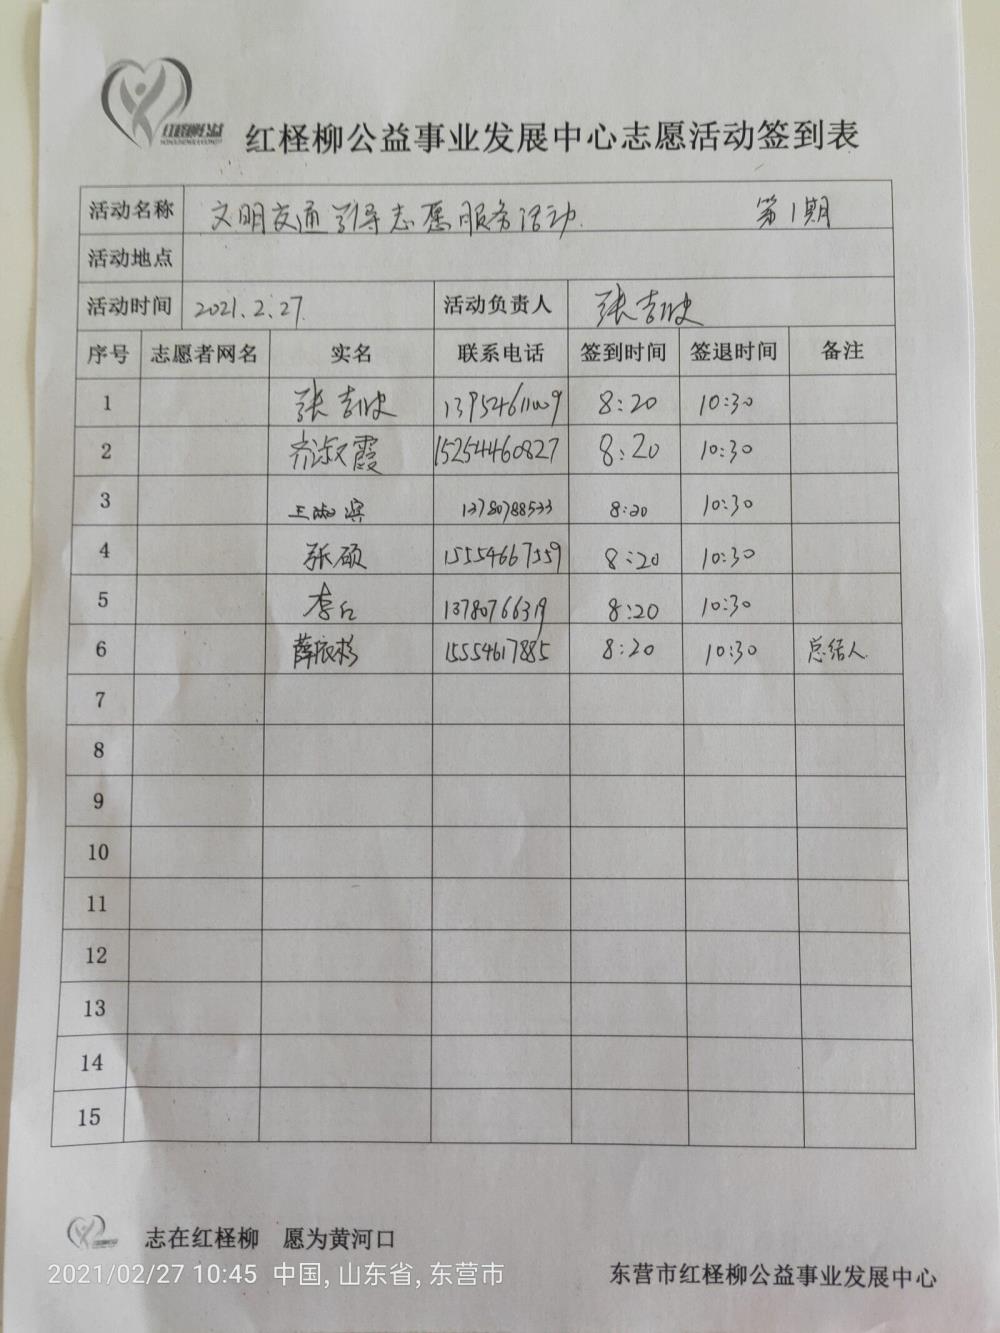 红柽柳公益
红柽柳公益事业发展中心志愿活动签到表
活动名称 文明交通引导志愿服务活动. 第1期
活动地点
活动时间 2021.2.27. 活动负责人 张吉
序号 志愿者网名 实名 联系电话 签到时间 签退时间 备注
1 张吉 8:20 10:30
2 齐淑霞 15254460827 8:20 10:30
3 王淑滨 13780788533 8:20 10:30
4 张硕 15554667559 8:20 10:30
5 李 13780766319 8:20 10:30
6 薛 15554617885 8:20 10:30 总结人
7
8
9
10
11
12
13
14
15
志在红柽柳 愿为黄河口
2021/02/27 10:45 中国, 山东省, 东营市
东营市红柽柳公益事业发展中心